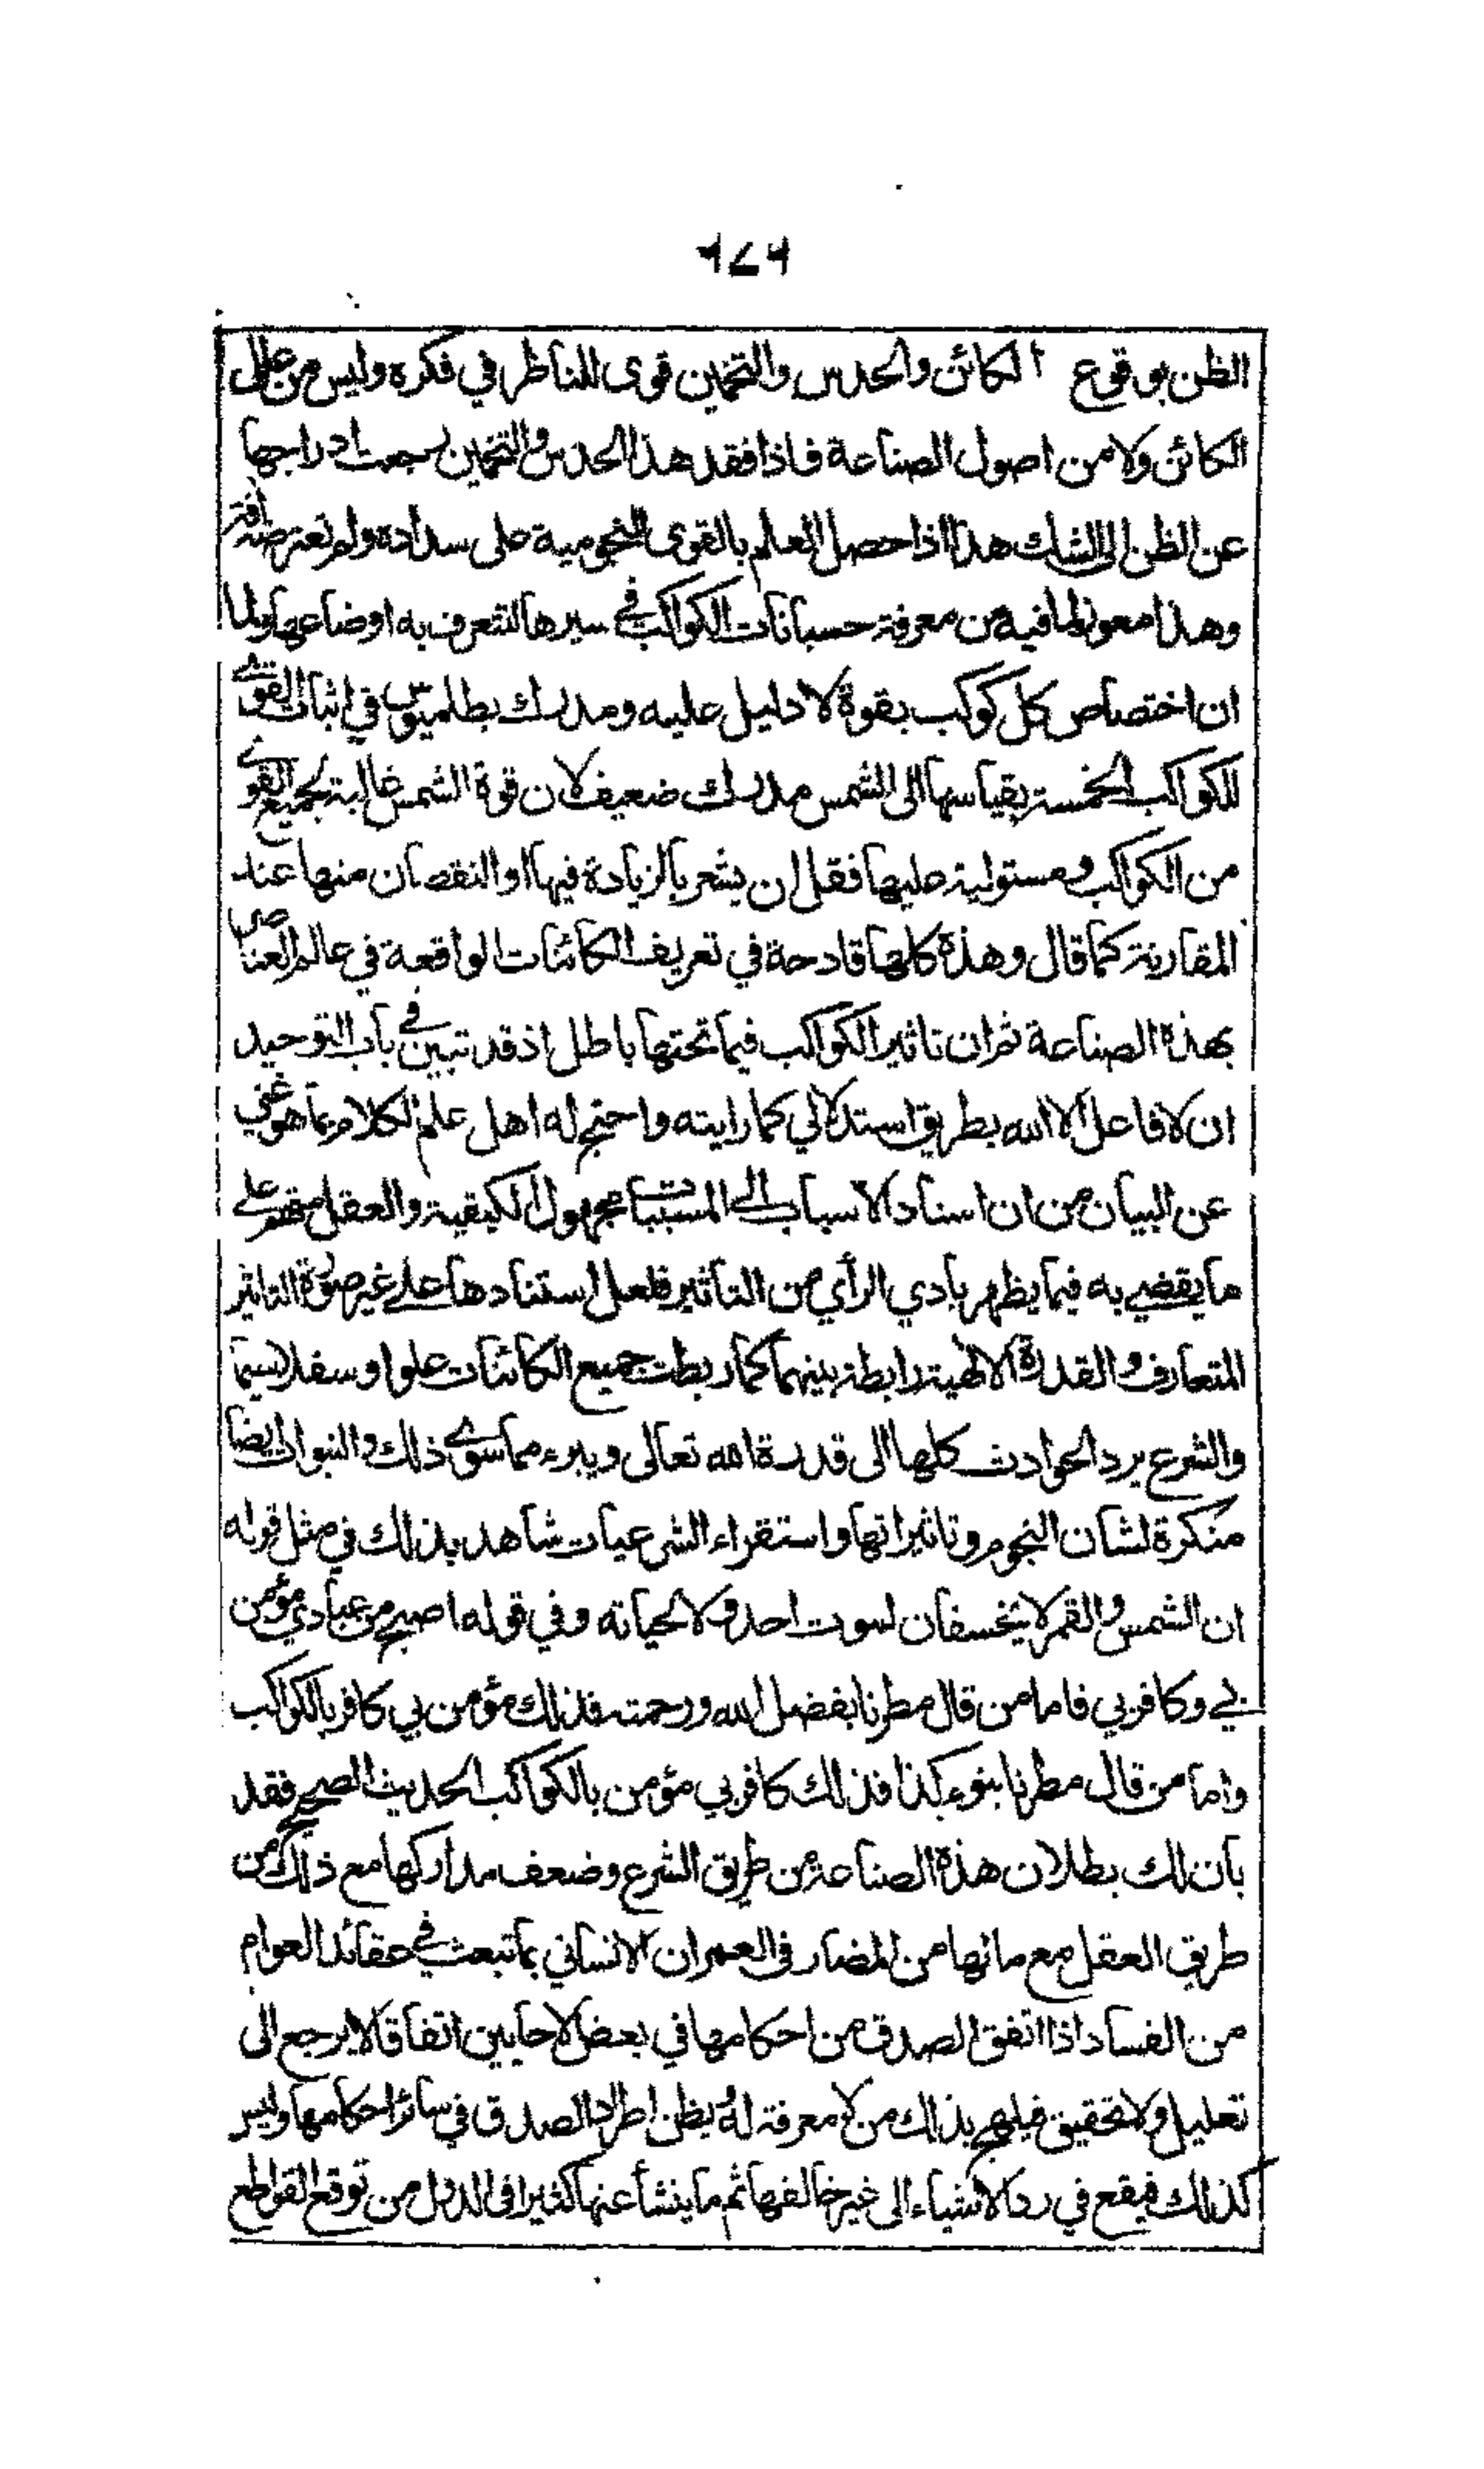 ٦٧٩
الظن بوقوع الكائن والحدس والتخمين قوى للناظر في فكره وليس من علل
الكائن ولا من اصول الصناعة فاذا فقد هذا الحدس والتخمين رجعت ادراجها
عن الظن الى الشك هذا اذا حصل العلم بالقوى النجومية على سداده ولم تعترضه آفة
وهذا معوز لما فيه من معرفة حسبانات الكواكب في سيرها لتتعرف به اوضاعها ولما
ان اختصاص كل كوكب بقوة لا دليل عليه ومدرك بطلميوس في اثبات القوى
للكواكب الخمسة بقياسها الى الشمس مدرك ضعيف لان قوة الشمس غالبة لجميع القوى
من الكواكب ومستولية عليها فقل ان يشعر بالزيادة فيها او النقصان منها عند
المقارنة كما قال وهذه كلها قادحة في تعريف الكائنات الواقعة في عالم العناصر
بهذه الصناعة ثم ان تاثير الكواكب فيما تحتها باطل اذ قد تبين في باب التوحيد
ان لا فاعل الا الله بطريق استدلالي كما رايته واحتج له اهل علم الكلام بما هو غني
عن البيان من ان اسناد الاسباب الى المسببات مجهول الكيفية والعقل متهم على
ما يقضي به فيما يظهر بادي الرأي من التاثير فلعل استنادها على غير صورة التاثير
المتعارف والقدرة الالهية رابطة بينهما كما ربطت جميع الكائنات علوا وسفلا سيما
والشرع يرد الحوادث كلها الى قدرة الله تعالى ويبرء مما سوى ذلك والنبوات ايضا
منكرة لشان النجوم وتاثيراتها واستقراء الشرعيات شاهد بذلك في مثل قوله
ان الشمس والقمر لا يخسفان لموت احد ولا لحياته وفي قوله اصبح من عبادي مؤمن
بي وكافر بي فاما من قال مطرنا بفضل الله ورحمته فذلك مؤمن بي كافر بالكواكب
واما من قال مطرنا بنوء كذا فذلك كافر بي مؤمن بالكواكب الحديث الصحيح فقد
بان لك بطلان هذه الصناعة من طريق الشرع وضعف مداركها مع ذلك من
طريق العقل مع ما لها من المضار في العمران الانساني بما تبعث في عقائد العوام
من الفساد اذا اتفق الصدق من احكامها في بعض الاحايين اتفاقا لا يرجع الى
تعليل ولا تحقيق فيلهج بذلك من لا معرفة له ويظن اطراد الصدق في سائر احكامها وليس
كذلك فيقع في رد الاشياء الى غير خالقها ثم ما ينشأ عنها كثيرا في الدول من توقع القواطع